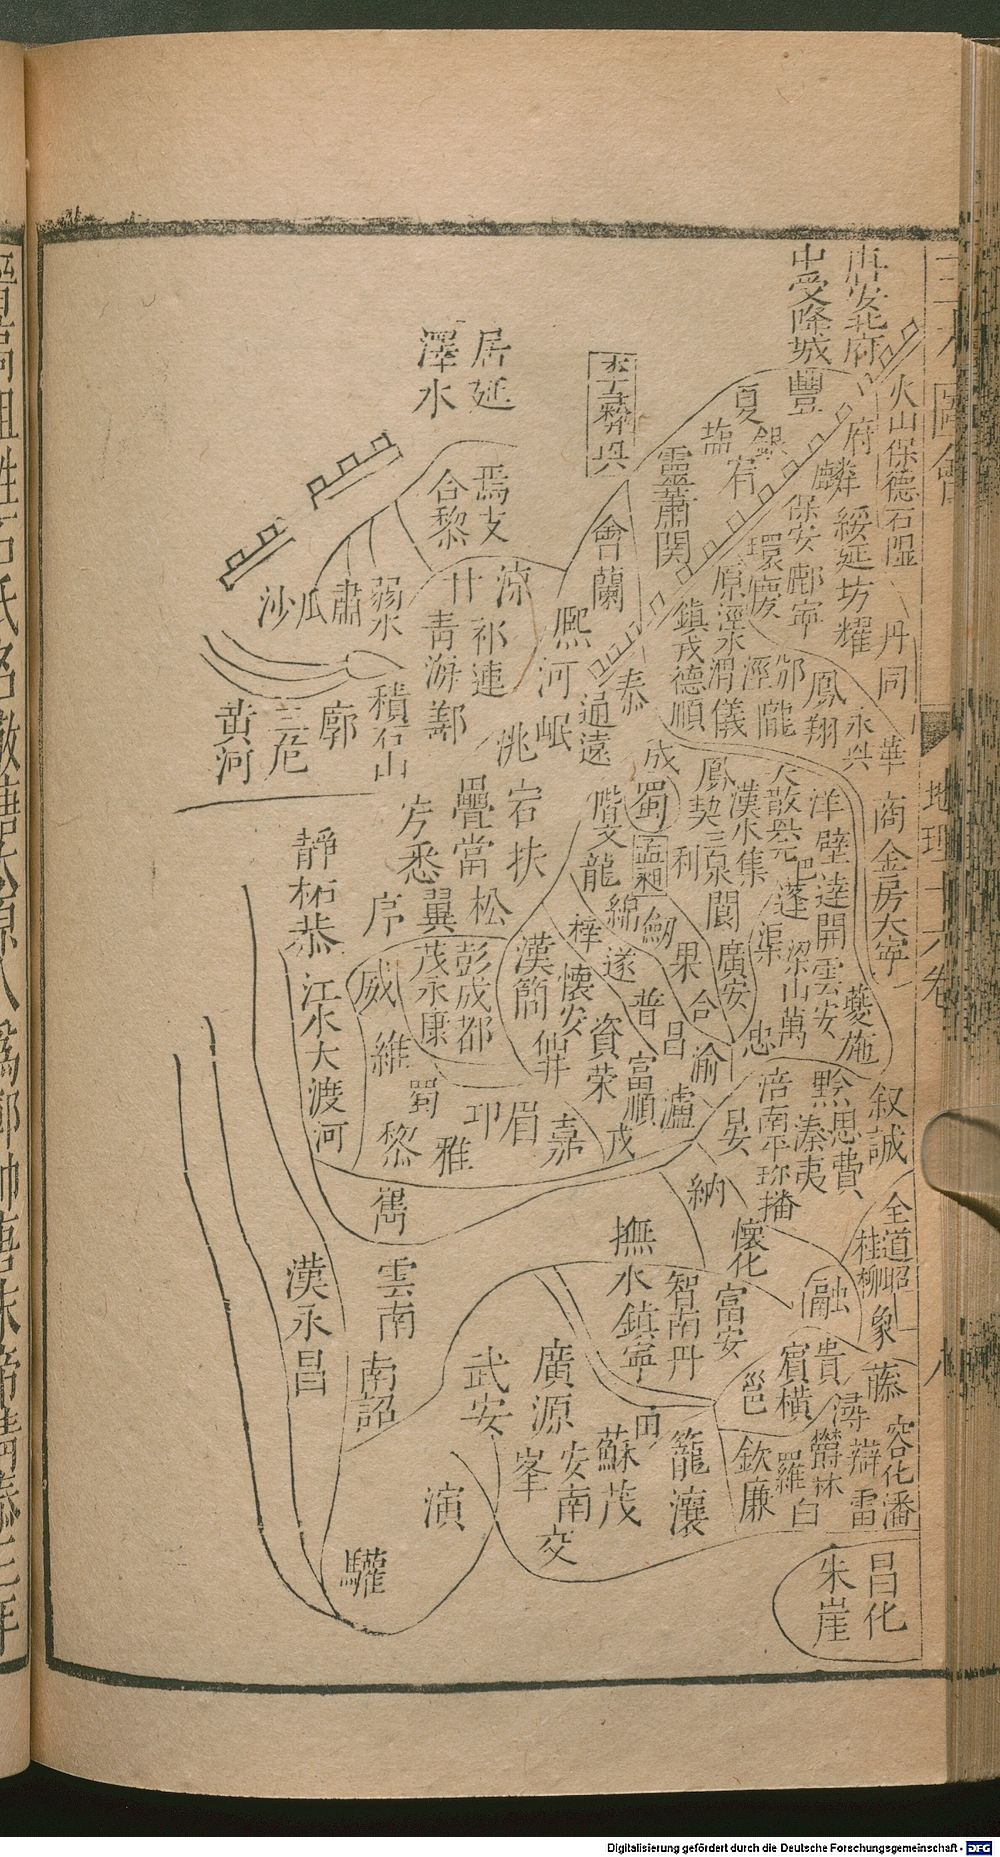 三才圖會
地理十六卷
唐安北府
中受降城
豐
火山保德石隰
府麟
綏延坊耀
夏
銀
鹽宥
保安鄜寧
環慶
原涇水渭儀
靈蕭関
鎮戎德順
李彝興
會蘭
熙
河
岷
洮
通遠
秦
成
鳳
丹同
華
永興
鳳翔
邠
涇隴
居延
澤水
焉支
合黎
涼
甘
祁連
青游鄯
弱水
肅
瓜
沙
積石山
廓
三危
黄河
商金房大寧
洋
壁逹開雲安
大散興元
巴
蓬
渠
梁山萬
漢水集
鳳
三泉
利
閬
廣安
蜀
孟昶
階文龍
綿
劒
果
合
渝
梓
遂
普
昌
瀘
漢簡
懷安
資荣
富順
戎
宕扶
疊當
松
翼
悉
静柘恭
江水大渡河
威
維
茂永康
彭成都
蜀
黎
雅
邛
眉
嘉
巂
夔施
忠
黔
思費
溱夷
涪南平珎播
叙誠
納
懷化
全道
桂
柳
昭
象
融
雲南
南詔
漢永昌
撫水鎮寧
智南丹
富安
武安
廣源
峯
安南
交
蘇茂
田
籠瀼
邕
賓横
貴
潯
藤
容化潘
鬱林
雷
羅
白
欽廉
演
驩
昌化
朱崖
晋高祖姓石氏
Digitalisierung gefördert durch die Deutsche Forschungsgemeinschaft - DFG